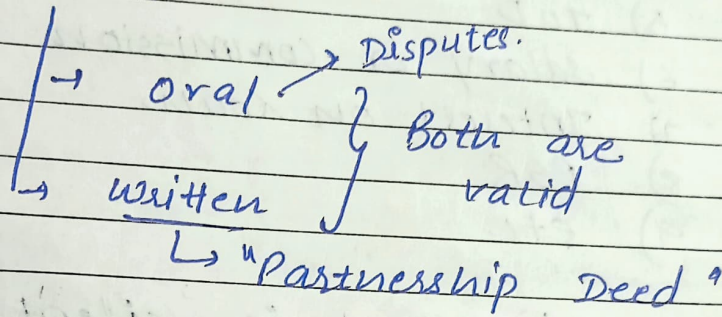 Disputes.
→ oral
Both are
valid
→ written
"Partnership Deed"